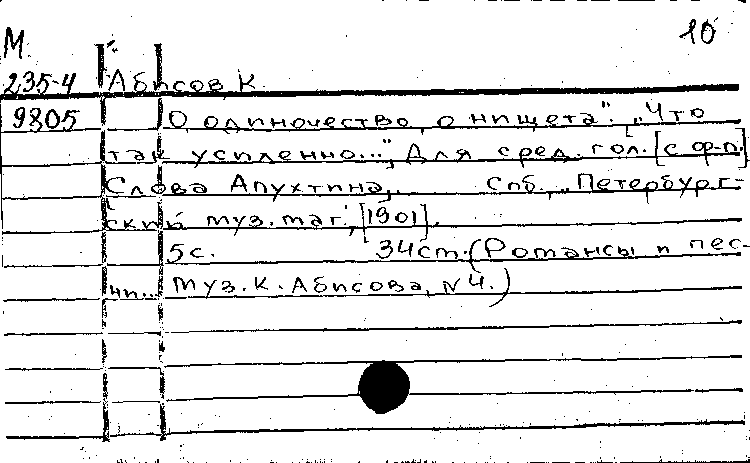 М. 10
235-4 Абисов К.
9805 О, одиночество, о нищета". ["Что
так усиленно...", Для сред. гол. [с ф-п.]
Слова Апухтина,. Спб., "Петербург-
ский муз. маг", [1901].
5с. 34ст. (Романсы и пес-
ни... муз. К. Абисова, N4.)